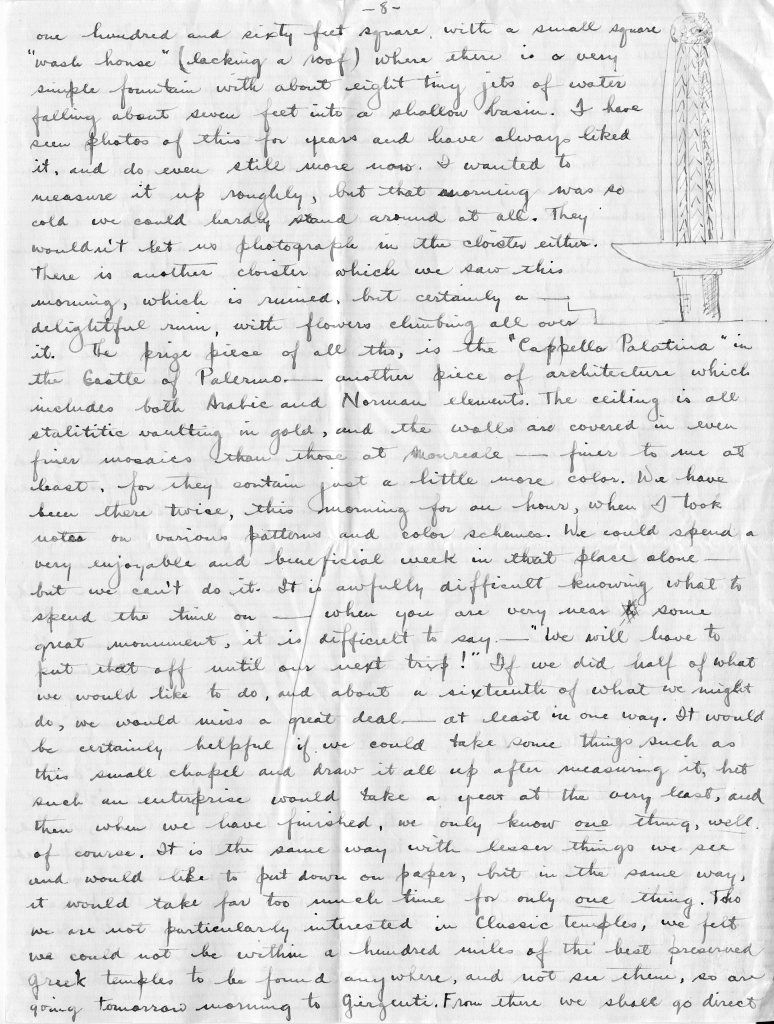 -8-
one hundred and sixty feet square, with a small square
"wash house" (lacking a roof) where there is a very
simple fountain with about eight tiny jets of water
falling about seven feet into a shallow basin. I have
seen photos of this for years and have always liked
it, and do even still more now. I wanted to
measure it up roughly, but that morning was so
cold we could hardly stand around at all. They
wouldn't let us photograph in the cloister either.
There is another cloister which we saw this
morning, which is ruined, but certainly a
delightful ruin, with flowers climbing all over
it. The prize piece of all tho, is the "Cappella Palatina" in
the Castle of Palermo. — another piece of architecture which
includes both Arabic and Norman elements. The ceiling is all
stalititic vaulting in gold, and the walls are covered in even
finer mosaics than those at Monreale — finer to me at
least, for they contain just a little more color. We have
been there twice, this morning for an hour, when I took
notes on various patterns and color schemes. We could spend a
very enjoyable and beneficial week in that place alone —
but we can't do it. It is awfully difficult knowing what to
spend the time on — when you are very near some
great monument, it is difficult to say — "We will have to
put that off until our next trip!" If we did half of what
we would like to do, and about a sixteenth of what we might
do, we would miss a great deal — at least in one way. It would
be certainly helpful if we could take some things such as
this small chapel and draw it all up after measuring it, but
such an enterprise would take a year at the very least, and
then when we have finished, we only know one thing, well.
of course. It is the same way with lesser things we see
and would like to put down on paper, but in the same way,
it would take far too much time for only one thing. Tho
we are not particularly interested in Classic temples, we felt
we could not be within a hundred miles of the best preserved
Greek temples to be found anywhere, and not see them, so are
going tomorrow morning to Girgenti. From there we shall go direct